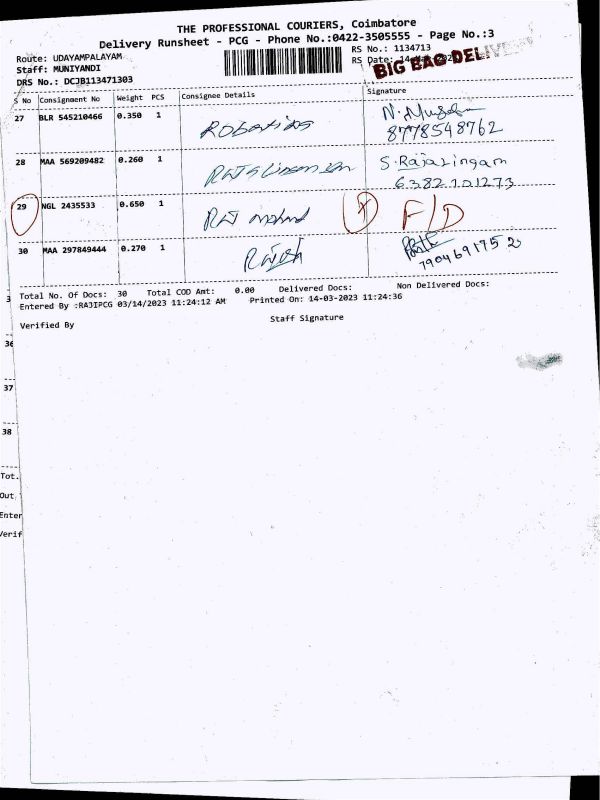 THE PROFESSIONAL COURIERS, Coimbatore
Delivery Runsheet - PCG - Phone No.:0422-3505555 - Page No.:3
Route: UDAYAMPALAYAM
Staff: MUNIYANDI
DRS No.: DCJB113471303
RS No.: 1134713
RS Date: 14
BIG BAG DELIVE
S No Consignment No Weight PCS Consignee Details Signature
27 BLR 545210466 0.350 1 Robotics N.
8778548762
28 MAA 569209482 0.260 1 S. Rajalingam
6382101273
29 NGL 2435533 0.650 1 F/D
30 MAA 297849444 0.270 1 Rajesh
7904691752
Total No. Of Docs: 30 Total COD Amt: 0.00 Delivered Docs: Non Delivered Docs:
Entered By :RAJIPCG 03/14/2023 11:24:12 AM Printed On: 14-03-2023 11:24:36
Verified By Staff Signature
36
37
38
Tot.
Out
Enter
Verif